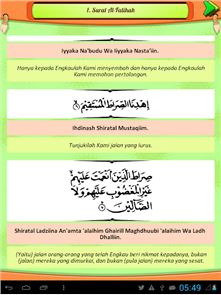 1. Surat Al Fatihah
Iyyaka Na'budu Wa Iiyyaka Nasta'iin.
Hanya kepada Engkaulah Kami menyembah dan hanya kepada Engkaulah
Kami memohon pertolongan.
اِهْدِنَا الصِّرَاطَ الْمُسْتَقِيْمَ
Ihdinash Shiratal Mustaqiim.
Tunjukilah Kami jalan yang lurus.
صِرَاطَ الَّذِيْنَ اَنْعَمْتَ عَلَيْهِمْ
غَيْرِ الْمَغْضُوْبِ عَلَيْهِمْ وَلَا
الضَّآلِّيْنَ
Shiratal Ladziina An'amta 'alaihim Ghairill Maghdhuubi 'alaihim Wa Ladh
Dhalliin.
(Yaitu) jalan orang-orang yang telah Engkau beri nikmat kepadanya, bukan
(jalan) mereka yang dimurkai, dan bukan (pula jalan) mereka yang sesat.
05:49